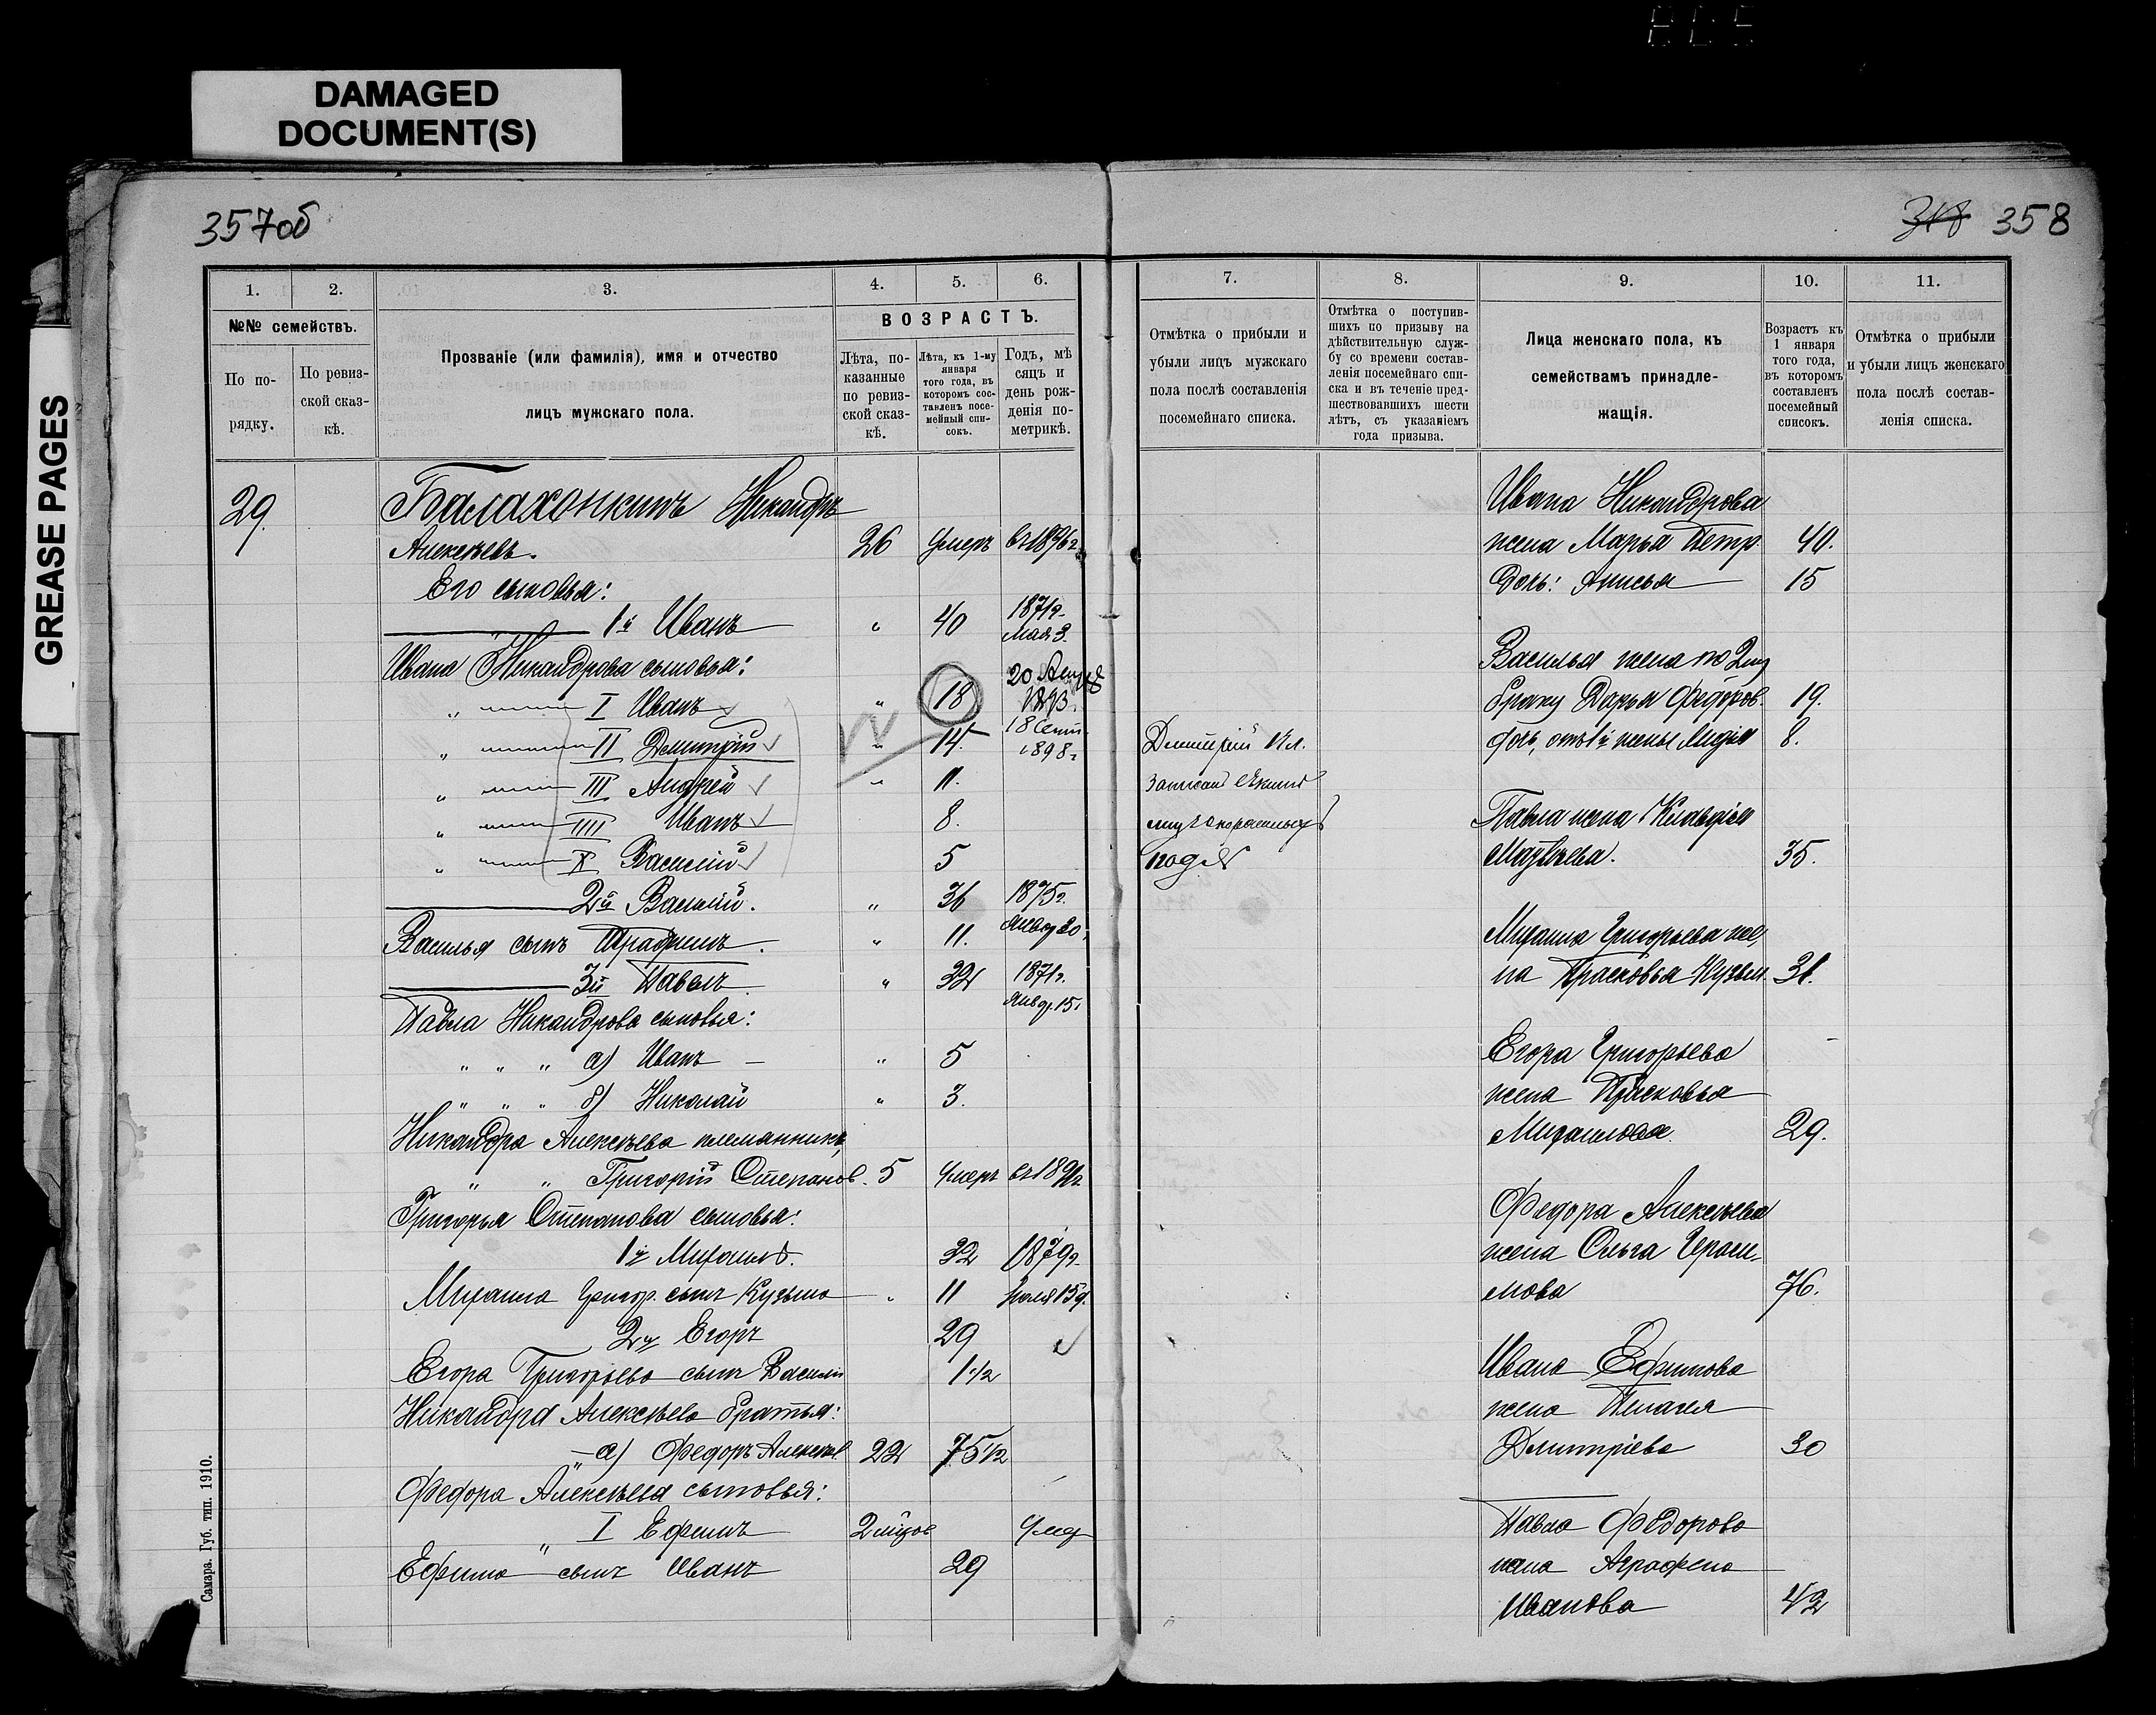 DAMAGED
DOCUMENT(S)
GREASE PAGES
357об
318 358
1.
2.
3.
4.
5.
6.
7.
8.
9.
10.
11.
№№ семействъ.
По по-
рядку.
По ревиз-
ской сказ-
кѣ.
Прозваніе (или фамилія), имя и отчество
лицъ мужскаго пола.
ВОЗРАСТЪ.
Лѣта, по-
казанные
по ревиз-
ской сказ-
кѣ.
Лѣта, къ 1-му
января
того года, въ
которомъ сос-
тавленъ посе-
мейный спи-
сокъ.
Годъ, мѣ
сяцъ и
день рож-
денія по-
метрикѣ.
Отмѣтка о прибыли и
убыли лицъ мужскаго
пола послѣ составленія
посемейнаго списка.
Отмѣтка о поступив-
шихъ по призыву на
дѣйствительную служ-
бу со времени состав-
ленія посемейнаго спи-
ска и въ теченіе пред-
шествовавшихъ шести
лѣтъ, съ указаніемъ
года призыва.
Лица женскаго пола, къ
семействамъ принадле-
жащія.
Возрастъ къ
1 января
того года,
въ которомъ
составленъ
посемейный
списокъ.
Отмѣтка о прибыли
и убыли лицъ женскаго
пола послѣ состав-
ленія списка.
29.
Балахонкинъ Никандръ
Алексѣевъ. 26 Умеръ въ 1896г.
Его сыновья:
1й Иванъ " 40 1871г. Мая 3.
Ивана Никандрова сыновья:
" I Иванъ " 18 20
" II Дмитрій " 14. 18 Сент. 1898г
" III Андрей " 11.
" IIII Иванъ 8.
" X Василій 5
2й Василій. " 36 1875г. Январ 20
Василья сынъ " 11.
3й Павелъ. " 32 1871г. Янвр. 15.
Павла Никандрова сыновья:
" " " а) Иванъ " 5
" " " б) Николай " 3.
Никандра Алексѣева племянникъ,
" " Григорій Степанов. 5 Умеръ
Григорья Степанова сыновья:
1й Михаилъ. 32 1879г.
Михаила Григор. сынъ Кузьма " 11 15
2й Егоръ 29
Егора Григорьева сынъ Василій 1 1/2
Никандра Алексѣева братья:
а) Федоръ Алексѣев. 22 75 1/2
Федора Алексѣева сыновья:
" I Ефимъ Умер
Ефима сынъ Иванъ 29
Дмитрій
записан
года
Ивана Никандрова
жена Марья Петр. 40.
Дочь: Анисья 15
Василья жена по 2му
браку Дарья Федоров. 19.
дочь, отъ 1й жены Лидія 8.
Павла жена Клавдія
Матвѣева. 35.
Михаила Григорьева же,
на Прасковья Кузьм. 31.
Егора Григорьева
жена Прасковья
Михаилова. 29.
Федора Алексѣева
жена Ольга Гераси-
мова 76.
Ивана Ефимова
жена Пелагея
Дмитріева 30
Павла Федорова
жена Аграфена
Иванова 42
Самара. Губ. тип. 1910.